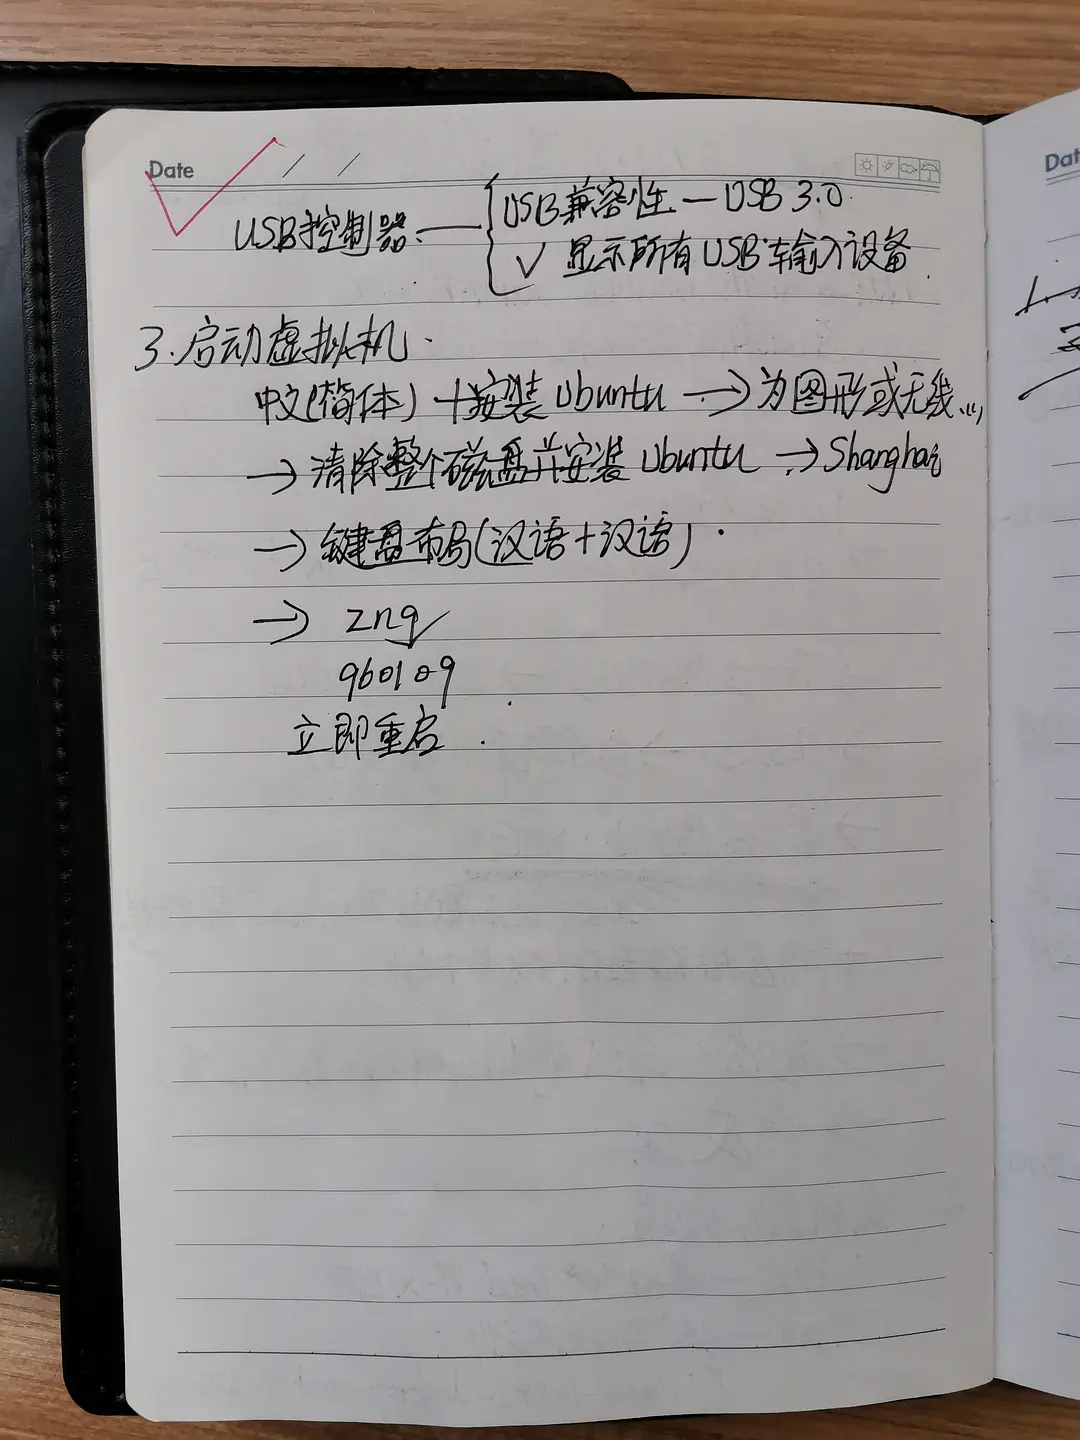 Date / /
USB控制器 — { USB兼容性 — USB 3.0
✓ 显示所有USB输入设备
3. 启动虚拟机.
中文(简体) + 安装 Ubuntu → 为图形或无线...
→ 清除整个磁盘并安装 Ubuntu → Shanghai
→ 键盘布局(汉语+汉语).
→ znq
960109
立即重启.
Dat
1.